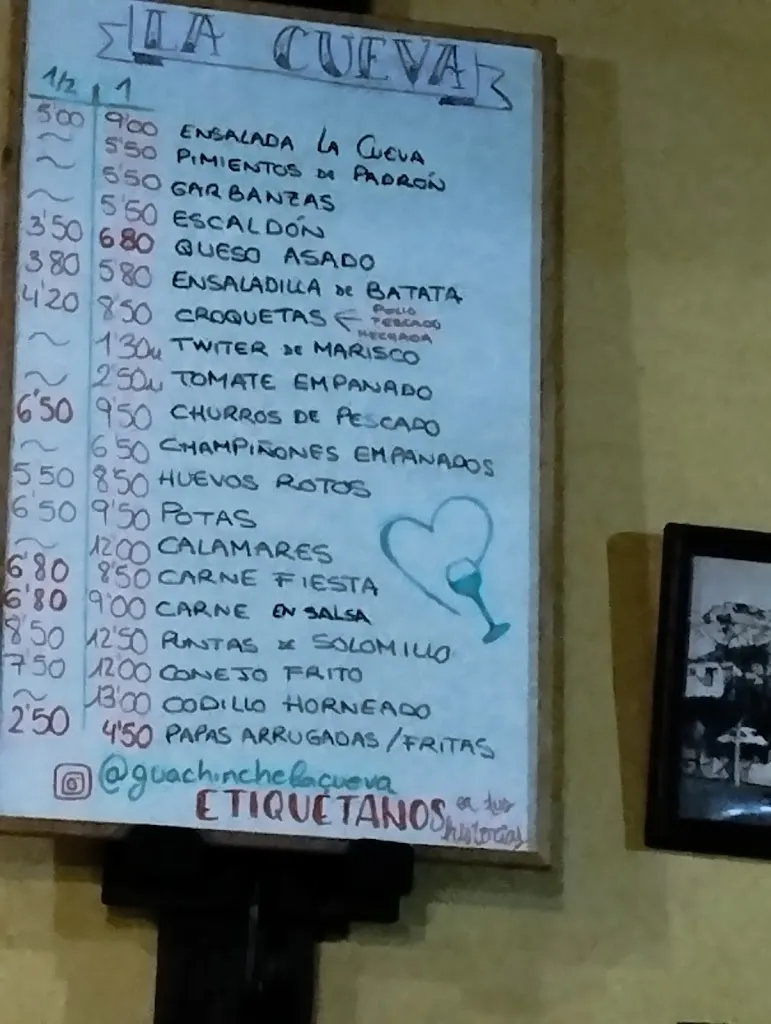 LA CUEVA
1/2 1
5'00 9'00 ENSALADA LA CUEVA
~ 5'50 PIMIENTOS DE PADRÓN
~ 5'50 GARBANZAS
~ 5'50 ESCALDÓN
3'50 6'80 QUESO ASADO
3'80 5'80 ENSALADILLA DE BATATA
4'20 8'50 CROQUETAS ← POLLO PESCADO MECHADA
~ 1'30u TWITER DE MARISCO
~ 2'50u TOMATE EMPANADO
6'50 9'50 CHURROS DE PESCADO
~ 6'50 CHAMPIÑONES EMPANADOS
5'50 8'50 HUEVOS ROTOS
6'50 9'50 POTAS
~ 12'00 CALAMARES
6'80 8'50 CARNE FIESTA
6'80 9'00 CARNE EN SALSA
8'50 12'50 PUNTAS DE SOLOMILLO
7'50 12'00 CONEJO FRITO
~ 13'00 CODILLO HORNEADO
2'50 4'50 PAPAS ARRUGADAS/FRITAS
@guachinchelacueva
ETIQUETANOS en tus historias